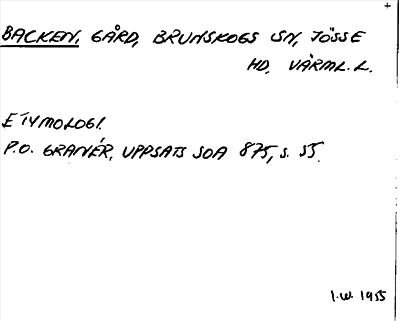 BACKEN, GÅRD, BRUNSKOGS SN, JÖSSE
HD, VÄRML. L.
ETYMOLOGI.
P.O. GRANÉR, UPPSATS SOA 875, S. 55.
I.W. 1955